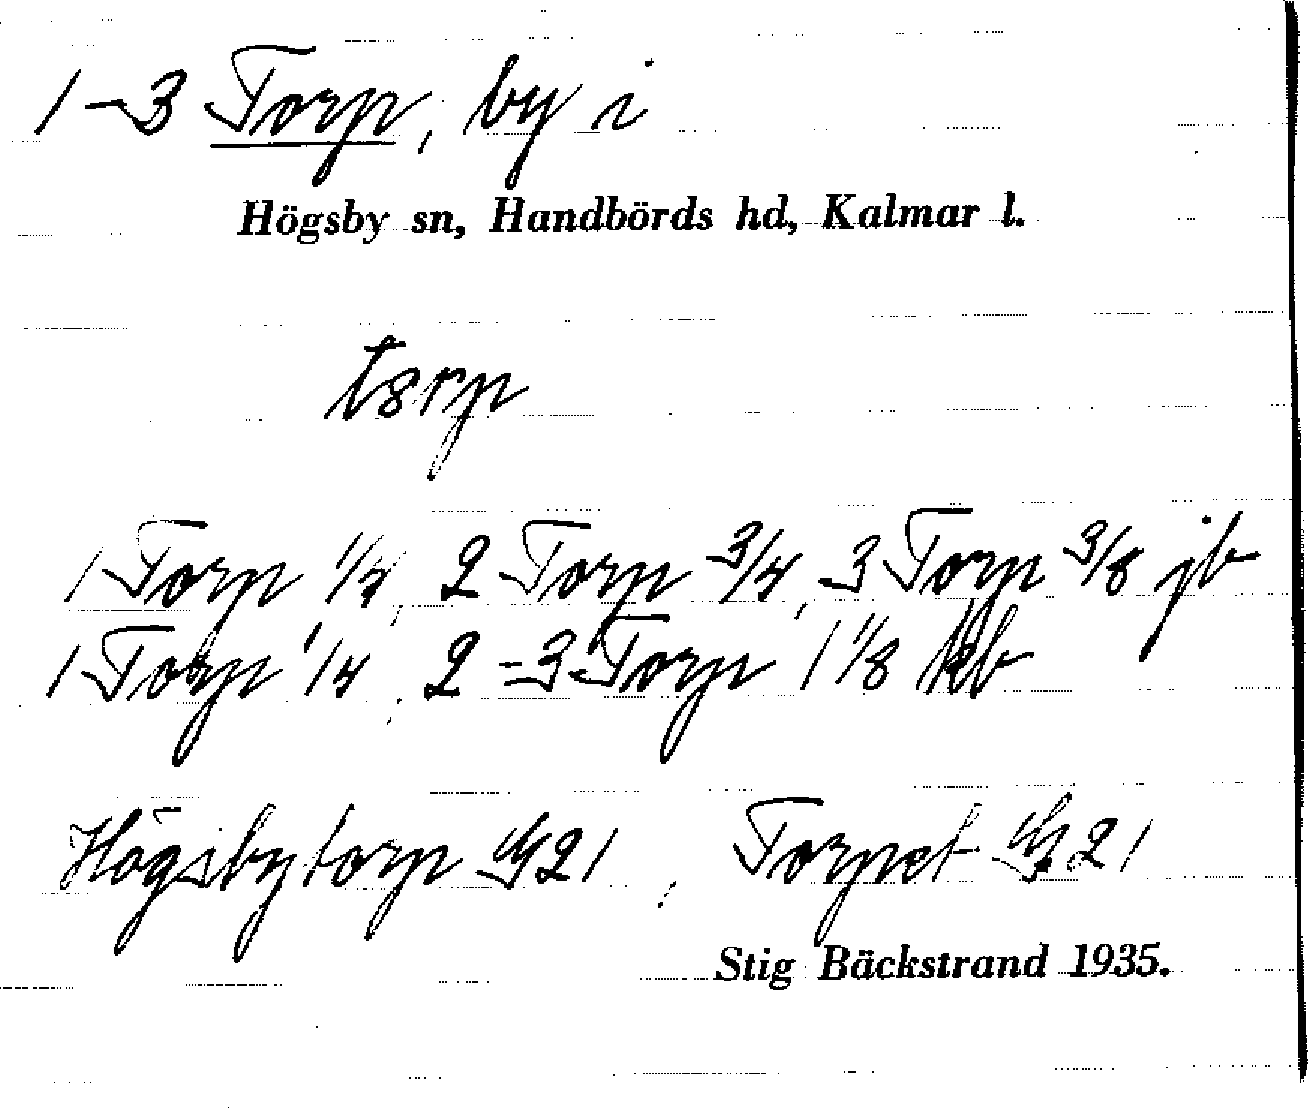 1-3 Torp, by i
Högsby sn, Handbörds hd, Kalmar l.
tɞrp
1 Torp 1/4, 2 Torp 3/4, 3 Torp 3/8 jb
1 Torp 1/4, 2-3 Torp 1 1/8 kb
Högsbytorp G21, Torpet G21
Stig Bäckstrand 1935.